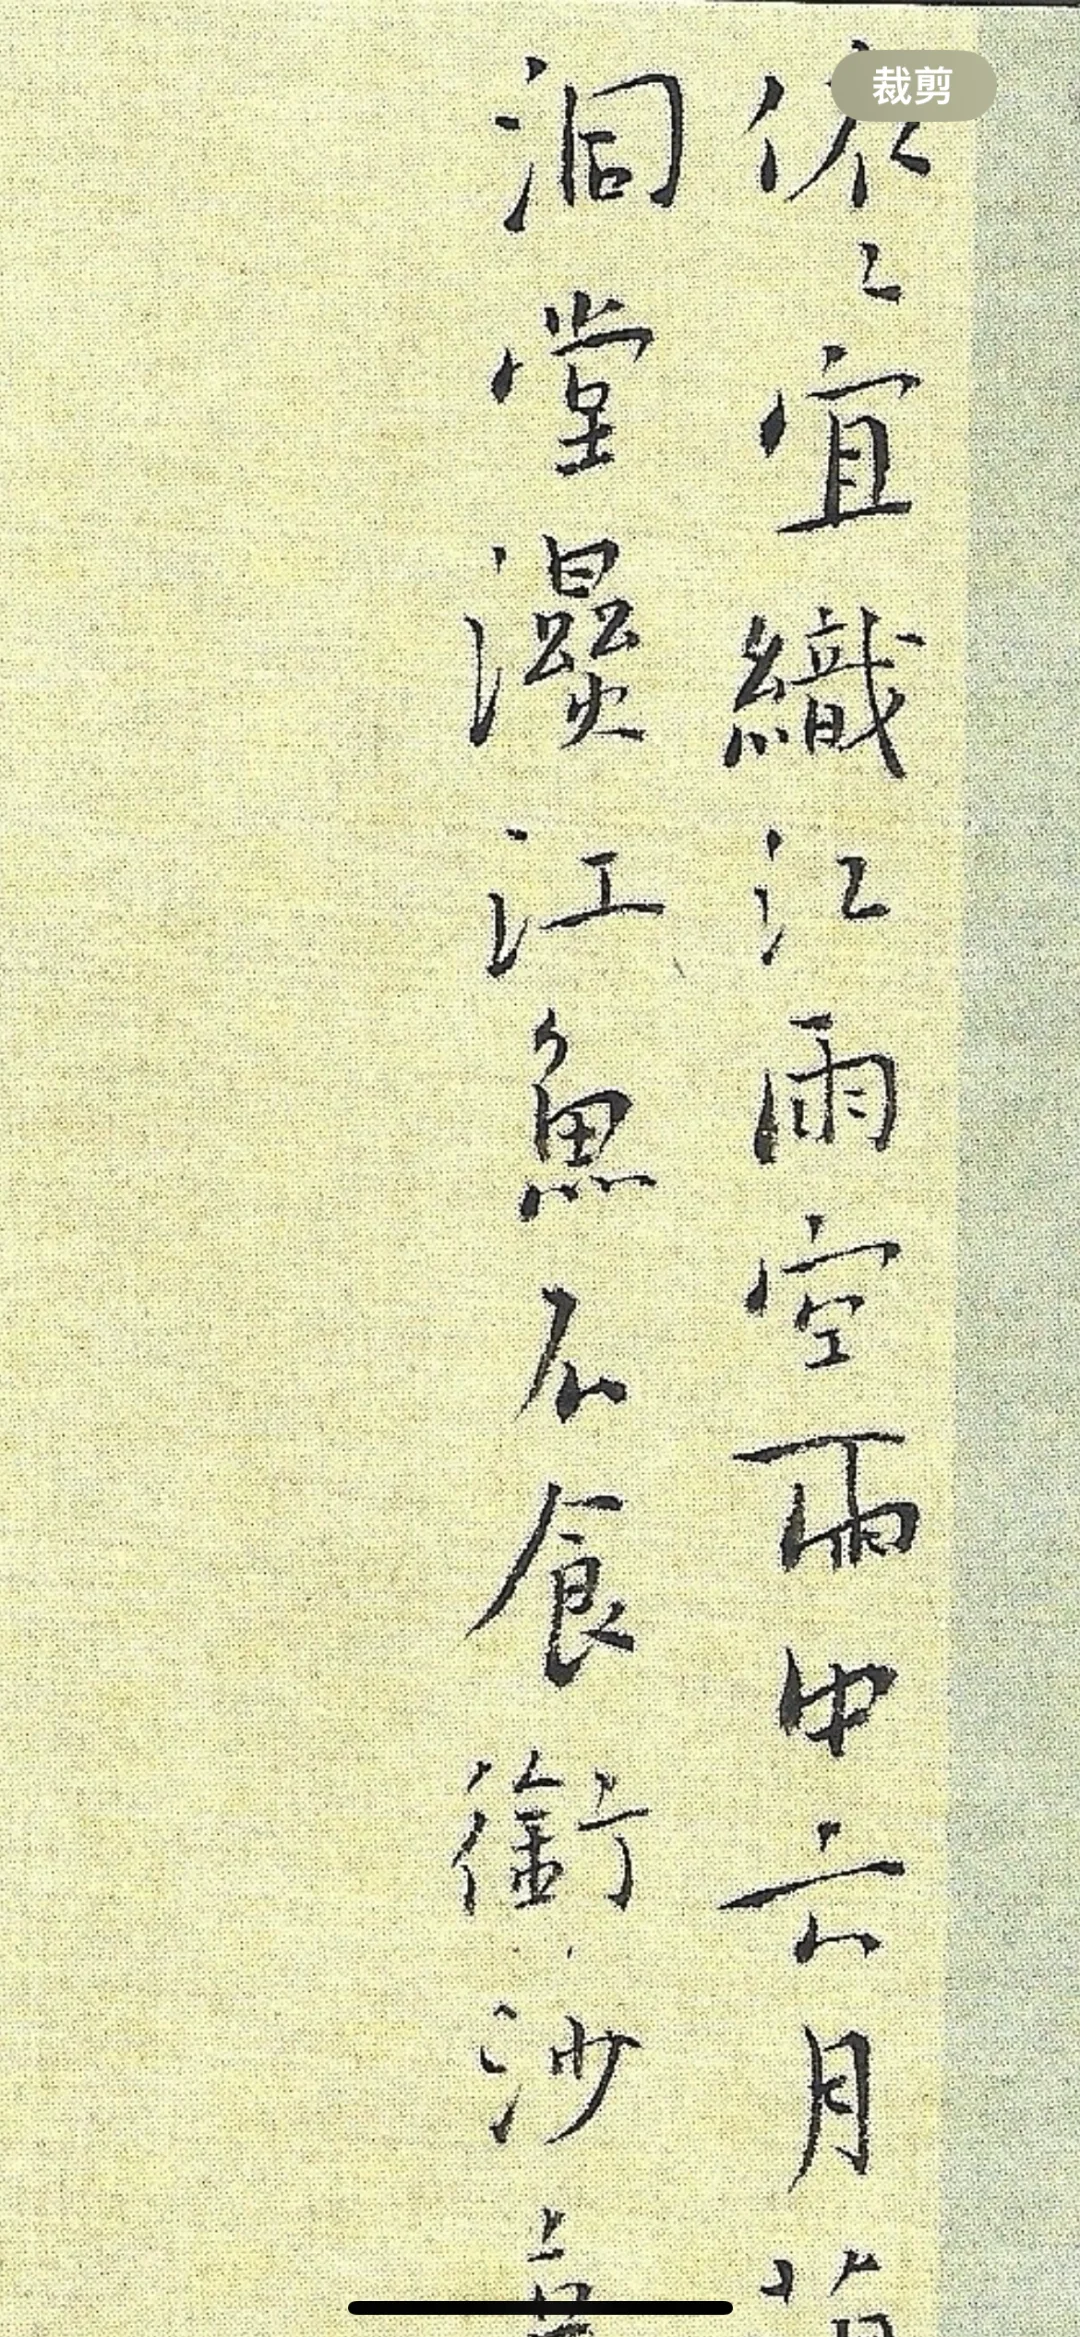 裁剪
依〻宜織江雨空雨中六月
洞堂濕江魚不食銜沙